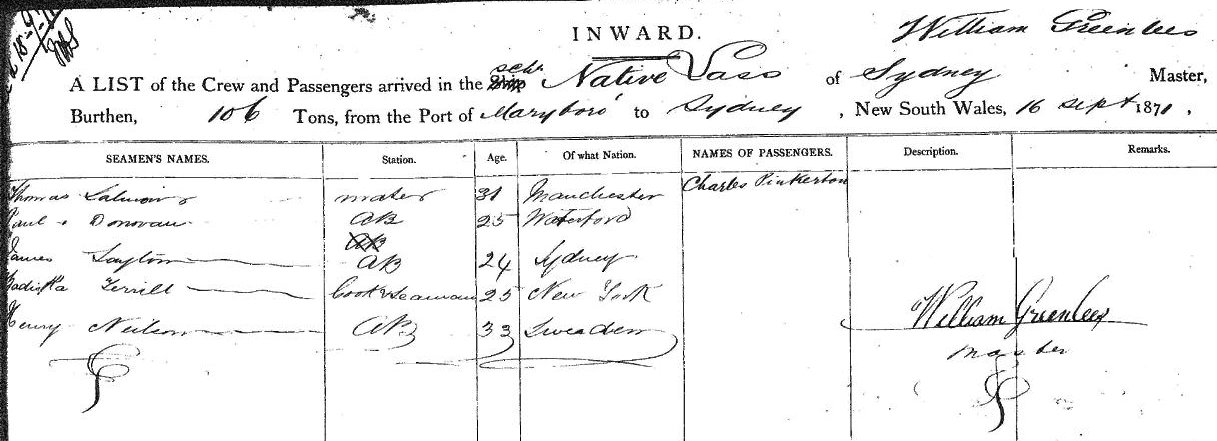 INWARD.
William Greenlees
A LIST of the Crew and Passengers arrived in the Ship schr Native Lass of Sydney Master,
Burthen, 106 Tons, from the Port of Maryboro' to Sydney, New South Wales, 16 Sept 1871,
SEAMEN'S NAMES. Station. Age. Of what Nation. NAMES OF PASSENGERS. Description. Remarks.
Thomas Salmon mate 31 Manchester Charles Pinkerton
Paul Donovan AB 25 Waterford
AB
James Layton AB 24 Sydney
Terrill Cook & Seaman 25 New York
Henry Neilson AB 33 Sweaden
William Greenlees
Master